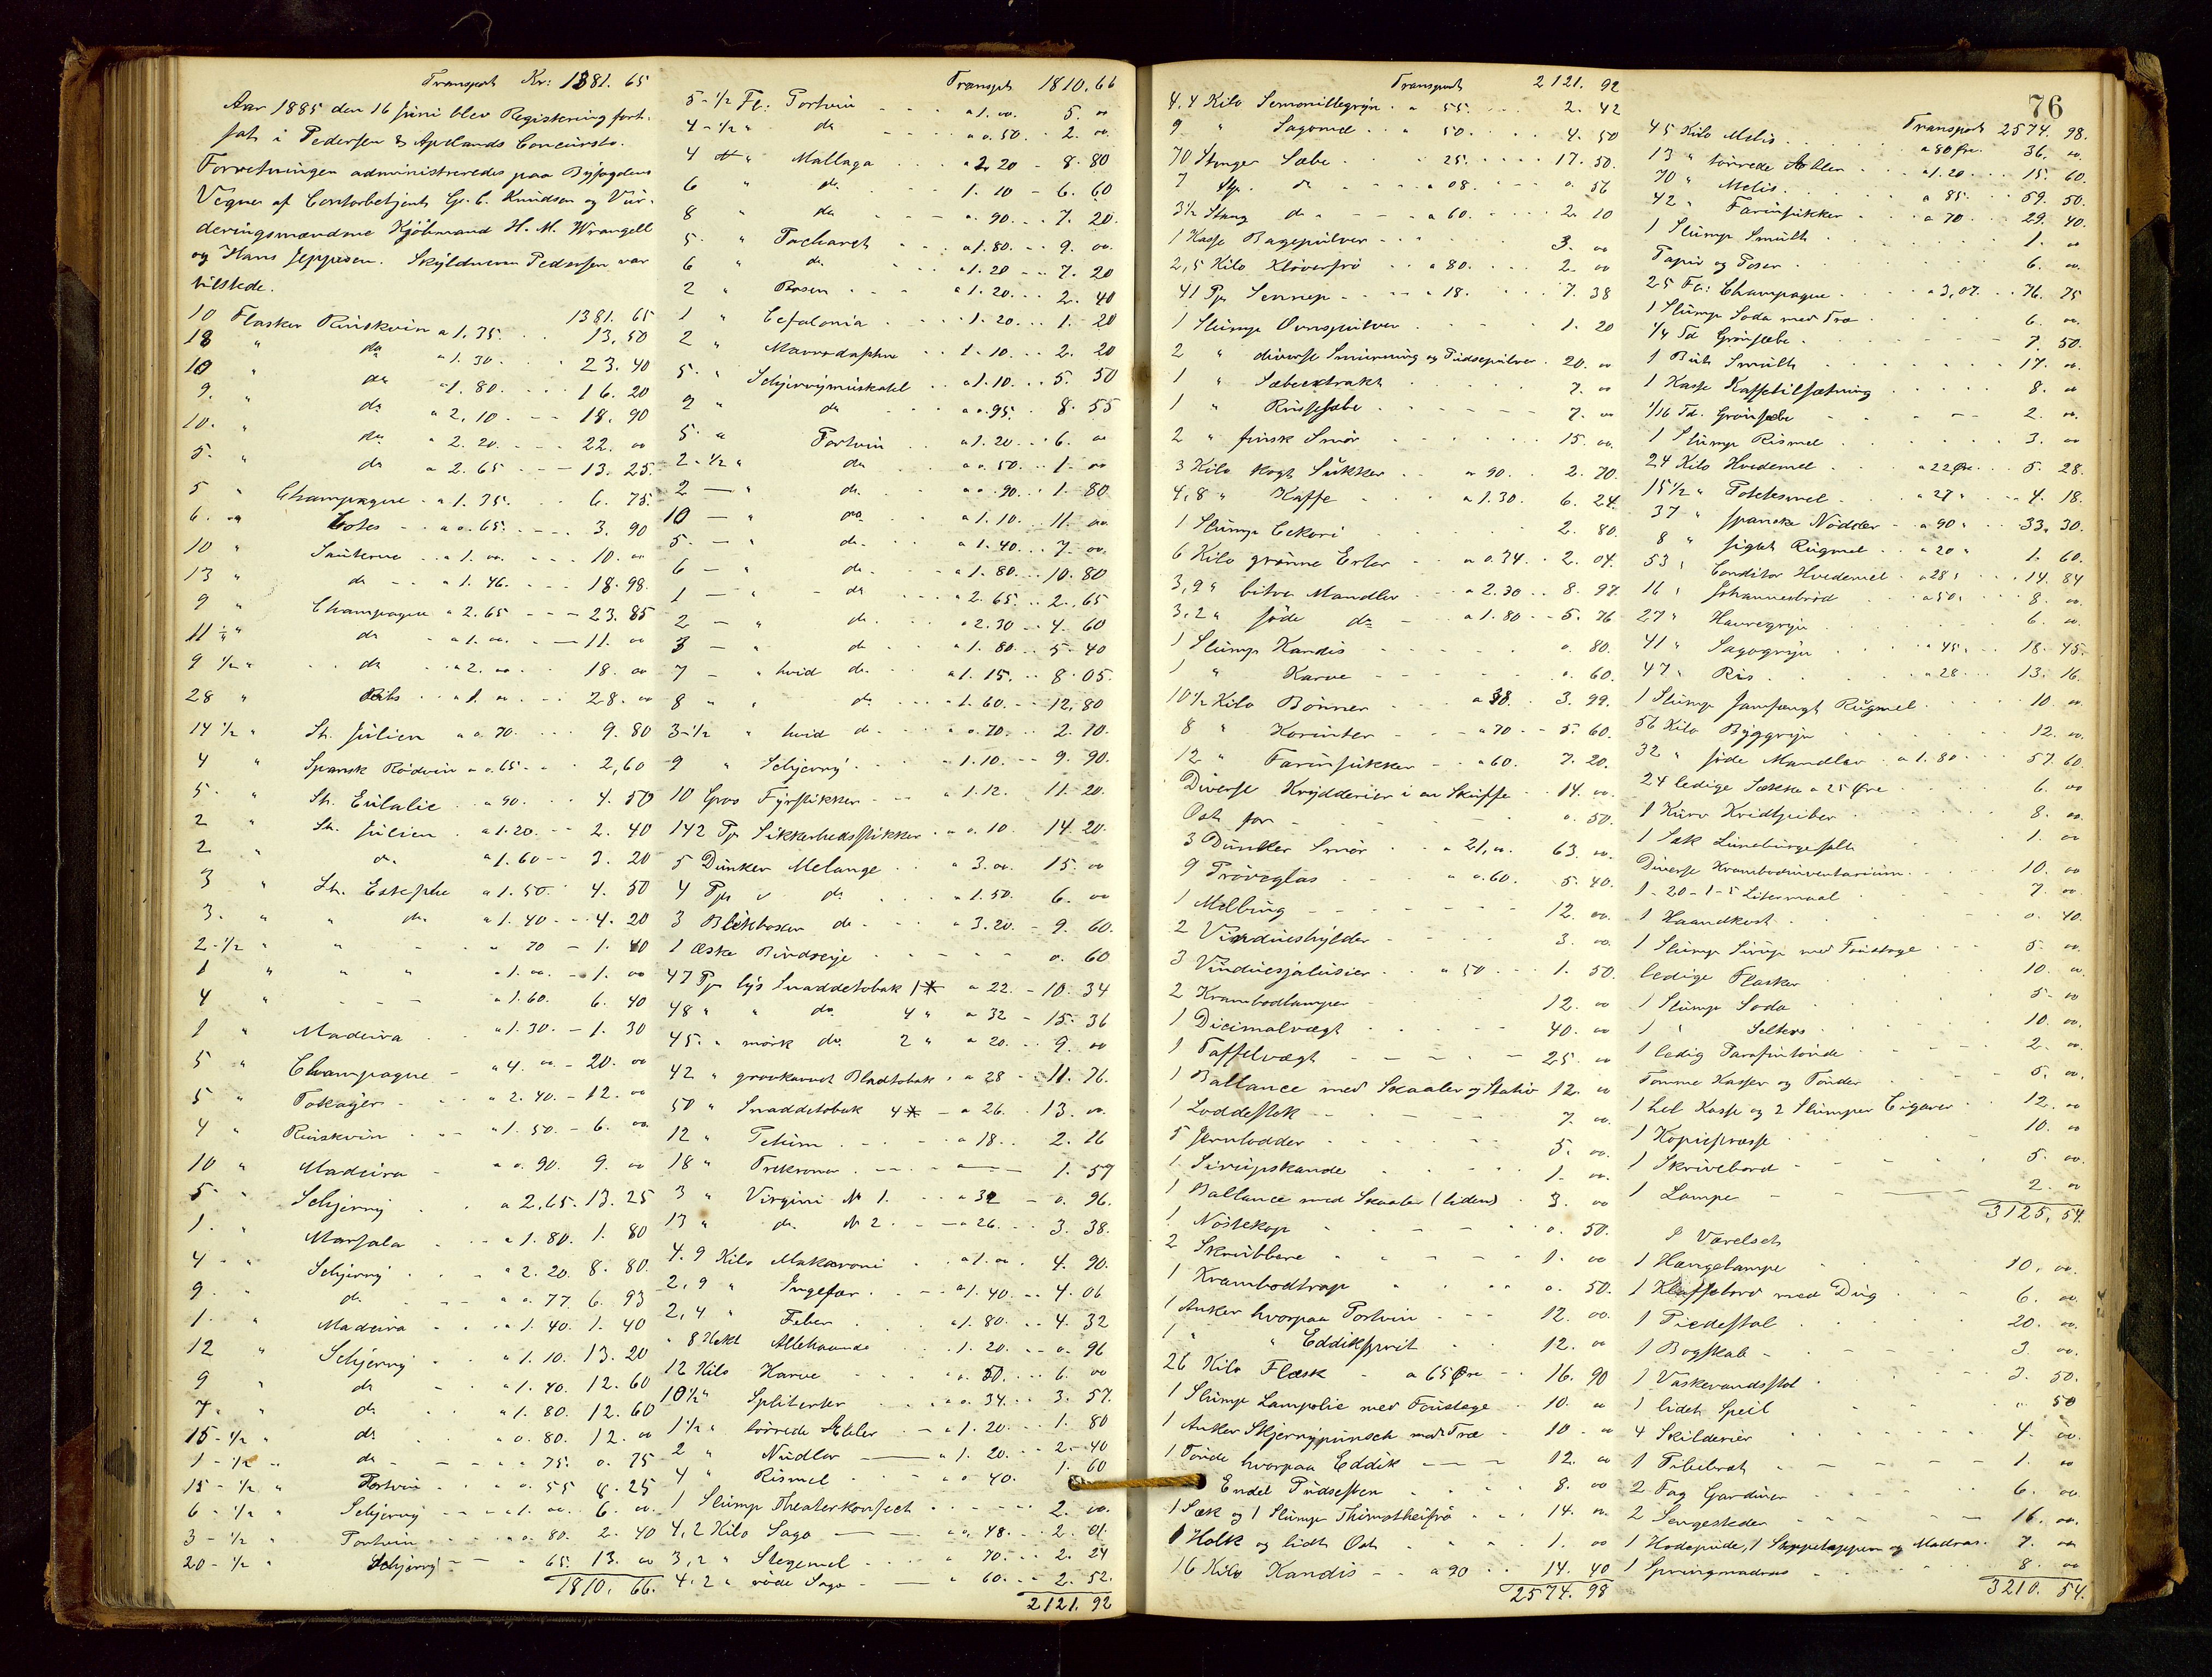 Transport Kr: 1381. 65
Aar 1885 den 16 Juni blev Registrering fort-
sat i Pedersen & Apelands Concursbo.
Forretningen administreredes paa Byfogdens
Vegne af Contorbetjent G. C. Knudsen og Vur-
deringsmændene Kjöbmand H. M. Wrangell
og Hans Jeppesen. Skyldneren Pedersen var
tilstede.
1381. 65
10 Flasker Rinskvin a 1. 35. 13,50
18 " do a 1. 30. 23. 40
10 " do a 1. 80. 16. 20
9. " do a 2. 10. 18. 90
10. " do a 2. 20. 22. 00
5. " do a 2. 65. 13. 25.
5 " Champagne a 1. 35. 6. 75.
6. " Cotes a 0. 65. 3. 90
10 " Sauterne a 1. 00. 10. 00
13 " do a 1. 46. 18. 98.
9 " Champagne a 2. 65 23. 85
11 " do a 1. 00. 11. 00
9 1/2 " do a 2. 00 18. 00
28 " a 1. 00 28. 00
14 1/2 " St. Julien a 0. 70. 9. 80
4 " Spansk Rödvin a 0. 65 2,60
5. " St. Eulalie a 90. 4. 50
2 " St. Julien a 1. 20. 2. 40
2 " do a 1. 60 3. 20
3 " St. Estephe a 1. 50. 4. 50
3. " " do a 1. 40 4. 20
2-1/2 " " " 70 1. 40
1 " " " a 1. 00. 1. 00
4 " a 1. 60. 6. 40
1 " Madeira a 1. 30. 1. 30
5 " Champagne a 4. 00 20. 00
5 " Tokayer a 2. 40. 12. 00
4 " Rinskvin a 1. 50. 6. 00
10 " Madeira a 0. 90. 9. 00
5. " Schjerry a 2,65. 13. 25
1. " Marsala a 1. 80. 1. 80
4 " Schjerry a 2. 20. 8. 80.
9. " do a 0. 77. 6. 93
1. " Madeira a 1. 40. 1. 40
12 " Schjerry a 1. 10. 13. 20
9 " do a 1. 40. 12. 60
7. " do a 1. 80. 12. 60
15-1/2 " do a 0. 80. 12. 00
1-1/2 " do a 75. 0. 75
15-1/2 " Portvin a 0. 55 8. 25
6-1/2 " Schjerry a 1. 00. 6. 00
3-1/2 " Portvin a 0. 80. 2. 40
20-1/2 " Schjerry a 65. 13. 00
1810. 66.
Transport 1810. 66
5-1/2 Fl: Portvin a 1. 00. 5. 00
4-1/2 " do a 0. 50. 2. 00
4 " Mallaga a 2. 20 8. 80
6 " do 1. 10 6. 60
8 " do a 90. 7. 20.
5. " Pacharet a 1. 80. 9. 00.
6 " do a 1. 20 7. 20
2 " Rosen a 1. 20. 2. 40
1 " Cefalonia 1. 20. 1. 20
2 " Mavrodaphne 1. 10. 2. 20
5. " Schjerrymuskatel a 1. 10. 5. 50
9 " do a 0. 95. 8. 55
5. " Portvin a 1. 20. 6. 00
2-1/2 " do a 0. 50. 1. 00
2 — " do a 0. 90. 1. 80
10 — " do a 1. 10. 11. 00
5. — " do a 1. 40. 7. 00.
6 — " do a 1. 80. 10. 80
1 — " do a 2. 65. 2. 65
2 — " do a 2. 30 4. 60
3 — " do a 1. 80. 5. 40
7 — " hvid do a 1. 15. 8. 05.
8 " " do a 1. 60. 12. 80
3-1/2 " hvid do a 0. 70. 2. 10.
9 " Schjerry 1. 10. 9. 90.
10 Gros Fyrstikker a 1. 12. 11. 20.
142 Pr Sikkerhedsstikker a 0. 10. 14. 20.
5 Dunker Melange a 3. 00. 15. 00
4 Pr do a 1. 50. 6. 00
3 Blikboxer do a 3. 20. 9. 60.
1 æske Birdseye 0. 60
47 Pr lys Snaddetobak 1 * a 22. 10. 34
48 " " do 4 " a 32 15. 36
45. " mörk do 2 " a 20. 9. 00
42 " grovkarvet Bladtobak a 28 11. 76.
50 " Snaddetobak 4 * a 26. 13. 00.
12 " Petum a 18. 2. 16
18 " Trekroner 1. 57
3 " Virgini No 1. a 32 0. 96.
13 " do No 2. a 26. 3. 38.
4. 9 Kilo Makaroni a 1. 00. 4. 90.
2. 9 " Ingefær a 1. 40. 4. 06
2,4 " a 1. 80. 4. 32
" 8 Hekt Allehaande 1. 20. 0. 96
12 Kilo Karve a 0. 50. 6. 00
10 1/2 " Spliterter a 0. 34. 3. 57.
1 1/2 " törrede Æbler a 1. 20. 1. 80
2 " Nudler a 1. 20. 2. 40
4 " Rismel a 0 40. 1. 60
1 Slump Theaterkonfect 2. 00.
4,2 Kilo Sago a 0. 48. 2. 01.
3,2 " Stegemel a 70. 2. 24
4. 2 " röde Sago a 60. 2. 52.
2121. 92
Transport 2121. 92
4. 4 Kilo Semonillegryn a 55. 2. 42
9 " Sagomel a 50. 4. 50
70 Stenger Sæbe a 25. 17. 50.
7 do a 08. 0. 56
3 1/2 Stang do a 60. 2. 10
1 Kasse Bagepulver 3. 00
2,5 Kilo Klöverfrö a 80. 2. 00
41 Pr Sennep a 18. 7. 38
1 Slump Ovnspulver 1. 20
2 " diverse Smurning og Pudsepulver 20. 00
1 " Sæbeextrakt 7. 00
1 " Russesæbe 7. 00
2 " finsk Smör 15. 00.
3 Kilo kogt Sukker a 90. 2. 70.
4,8 " Kaffe a 1. 30. 6. 24.
1 Slump Cekori 2. 80.
6 Kilo grönne Erter a 0. 34. 2. 04.
3,9 " bitre Mandler a 2. 30 8. 97.
3. 2 " söde do a 1. 80 5. 76
1 Slump Kandis 0. 80.
1 " Karve 0. 60.
10 1/2 Kilo Bönner a 38. 3. 99.
8 " Korinter a 70 5. 60.
12 " Farinsukker a 60. 7. 20.
Diverse Krydderier i en Skuffe 14. 00.
Ost for 0. 50.
3 Dunker Smör a 21,00. 63. 00.
9 Pröveglas a 0. 60. 5. 40.
1 Melbing 12. 00.
2 Vindueshylder 3. 00.
3 Vinduesjalusier a 50 1. 50.
2 Krambodlamper 12. 00
1 Dicimalvægt 40. 00
1 Taffelvægt 25. 00
1 Ballance med Skaaler og Stativ 12. 00
1 Loddestok 7. 00.
5 Jernlodder 5. 00.
1 Sirupskande 1. 00.
1 Ballance med Skaaler (liden) 3. 00
1 Nöstekop 0. 50.
2 Skrubbere 1. 00
1 Krambodtrap 0. 50.
1 Anker hvorpaa Portvin 12. 00.
1 " " Eddiksprit 12. 00
26 Kilo Flæsk a 65 Øre 16. 90
1 Slump Lampolie med Foustage 10. 00
1 Anker Skjerrypunsch med Træ 10. 00
1 Tönde hvorpaa Eddik 12. 00
Endel Pudsesten 8. 00
1 Sæk og 1 Slump Thimotheifrö 14. 00
1 Holk og lidt Ost 1. 00
16 Kilo Kandis a 90 14. 40
2574. 98
76
Transport 2574. 98.
45 Kilo Melis a 80 Øre. 36. 00.
13 " törrede Æbler a 1. 20. 15. 60.
70 " Melis a 85. 59. 50.
42 " Farinsukker a 70 29. 40
1 Slump Smult 1. 00
Papir og Poser 6. 00.
25 Fl: Champagne a 3,07. 76. 75
1 Slump Soda med Træ 6. 00.
1/4 Td Grönsæbe 7. 50.
1 Bút Smult 17. 00.
1 Kasse Kaffetilsætning 8. 00
1/16 Td. Grönsæbe 2. 00.
1 Slump Rismel 3. 00
24 Kilo Hvedemel a 22 Øre. 5. 28.
15 1/2 " Potetesmel a 27 " 4. 18.
37 " spanske Nödder a 90 " 33. 30.
8 " sigtet Rugmel a 20 " 1. 60.
53 " Conditor Hvedemel a 28 " 14. 84
16 " Johannesbröd a 50 " 8. 00.
27 " Havregryn 6. 00
41 " Sagogryn a 45 " 18. 45
47 " Ris a 28 13. 16.
1 Slump Rugmel 10. 00
56 Kilo Byggryn 12. 00.
32 " söde Mandler a 1. 80 57. 60
24 ledige Sække a 25 Øre 6. 00
1 Kurv Kridtpiber 8. 00.
1 Sæk Luneburgesalt 1. 00
Diverse Krambodinventarium 10. 00
1-20-1-5 Litersmaal 7. 00.
1 Haandkost 0. 40.
1 Slump Sirup med Foustage 5. 00.
ledige Flasker 10. 00.
1 Slump Soda 5. 00
1 " Selters 10. 00.
1 ledig Parafintönde 2. 00.
Tomme Kasser og Tönder 5. 00.
1 hel Kasse og 2 Slumper Cigarer 12. 00
1 Kopiepresse 10. 00
1 Skrivebord 5. 00.
1 Lampe 2. 00
3125, 54.
I Værelset
1 Hængelampe 10. 00.
1 Klaffebord med Dug 6. 00.
1 Piedestal 20. 00.
1 Bogskab 3. 00.
1 Vaskevandsstol 3. 50.
1 lidet Speil " 50
4 Skilderier 4. 00.
1 Pibebræt 1. 00
2 Fag Gardiner 6. 00.
2 Sengesteder 16. 00.
1 Hodepude, 1 Stoppetæppe og Madras 7. 00
1 Springmadras 8. 00
3210. 54.